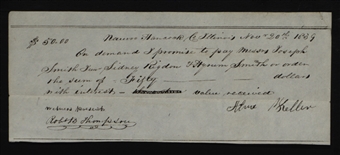 $50.00 Nauvoo Hancock, C Illinois Nov 20th 1839
On demand I promise to pay Messrs Joseph
Smith Jun Sidney Rigdon & Hyrum Smith or order
the sum of Fifty dollars
with interest, value received
witness
Robt B Thompson